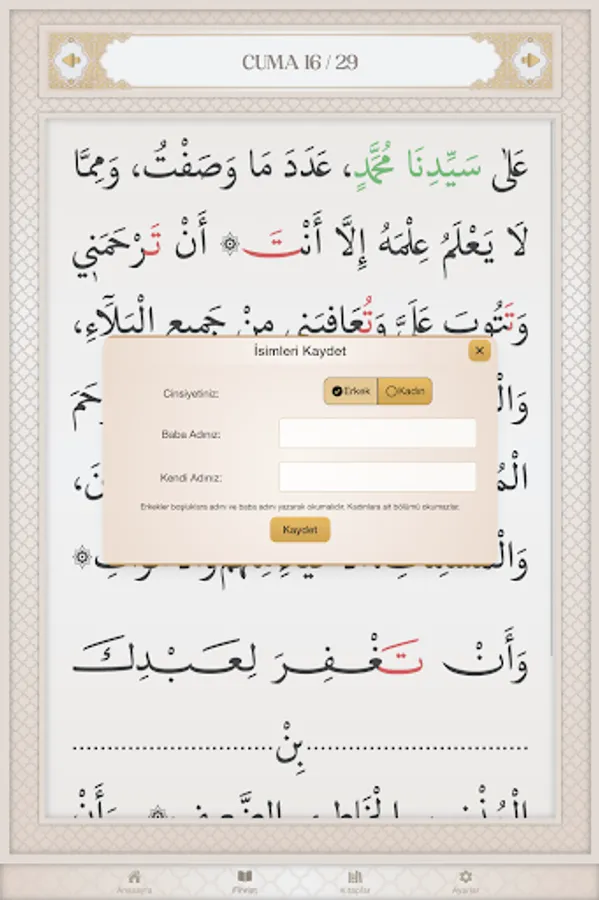 CUMA 16 / 29
عَلٰى سَيِّدِنَا مُحَمَّدٍ، عَدَدَ مَا وَصَفْتُ، وَمِمَّا
لَا يَعْلَمُ عِلْمَهُ إِلَّا أَنْتَ ۞ أَنْ تَرْحَمَنِي
وَتَتُوبَ عَلَيَّ وَتُعَافِيَنِي مِنْ جَمِيعِ الْبَلَٓاءِ،
İsimleri Kaydet
×
Cinsiyetiniz:
Erkek
Kadın
Baba Adınız:
Kendi Adınız:
Erkekler boşluklara adını ve baba adını yazarak okumalıdır. Kadınlara ait bölümü okumazlar.
Kaydet
وَأَنْ تَغْفِرَ لِعَبْدِكَ
بِنْ
Anasayfa
Fihrist
Kitaplar
Ayarlar